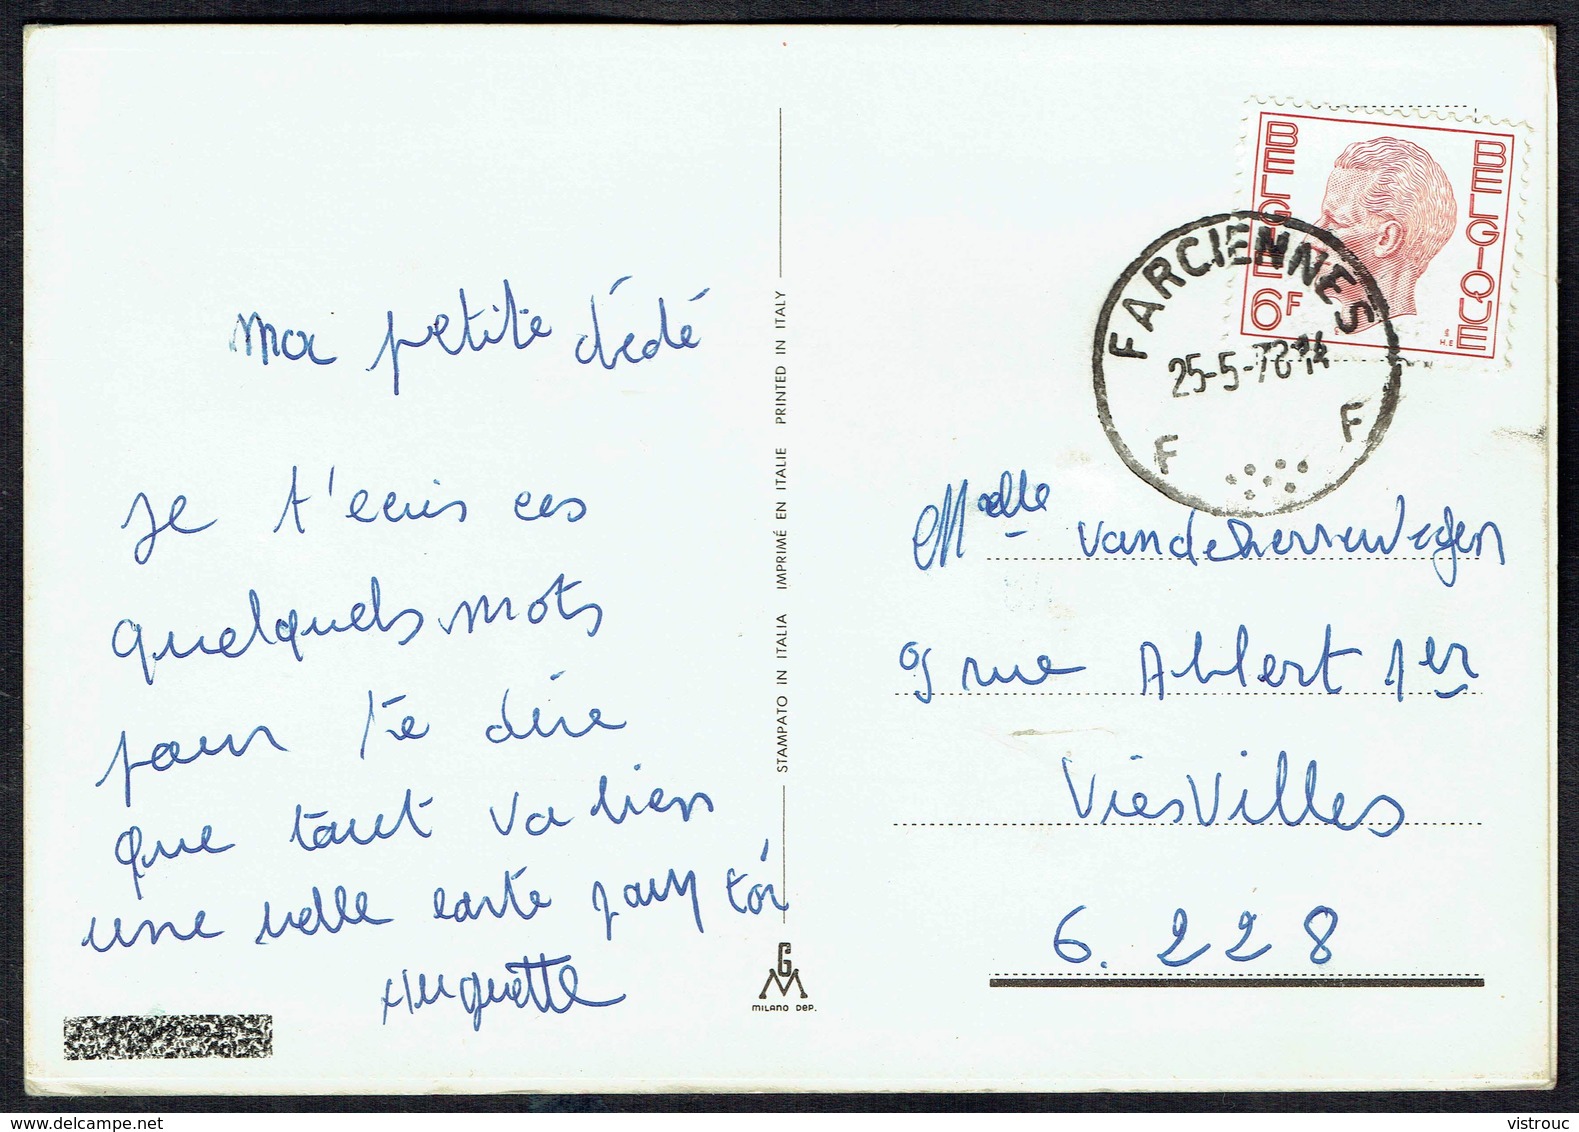 Ma petite dédé
Je t'ecris ces
quelquels mots
pour te dire
que tout va bien
une belle carte pour toi
Huguette
STAMPATO IN ITALIA IMPRIMÉ EN ITALIE PRINTED IN ITALY
GM
MILANO DEP.
BELGIË
BELGIQUE
6F
FARCIENNES
25-5-78 14
F F
Melle
9 rue Alblert 1er
ViesVilles
6.228
vistrouc